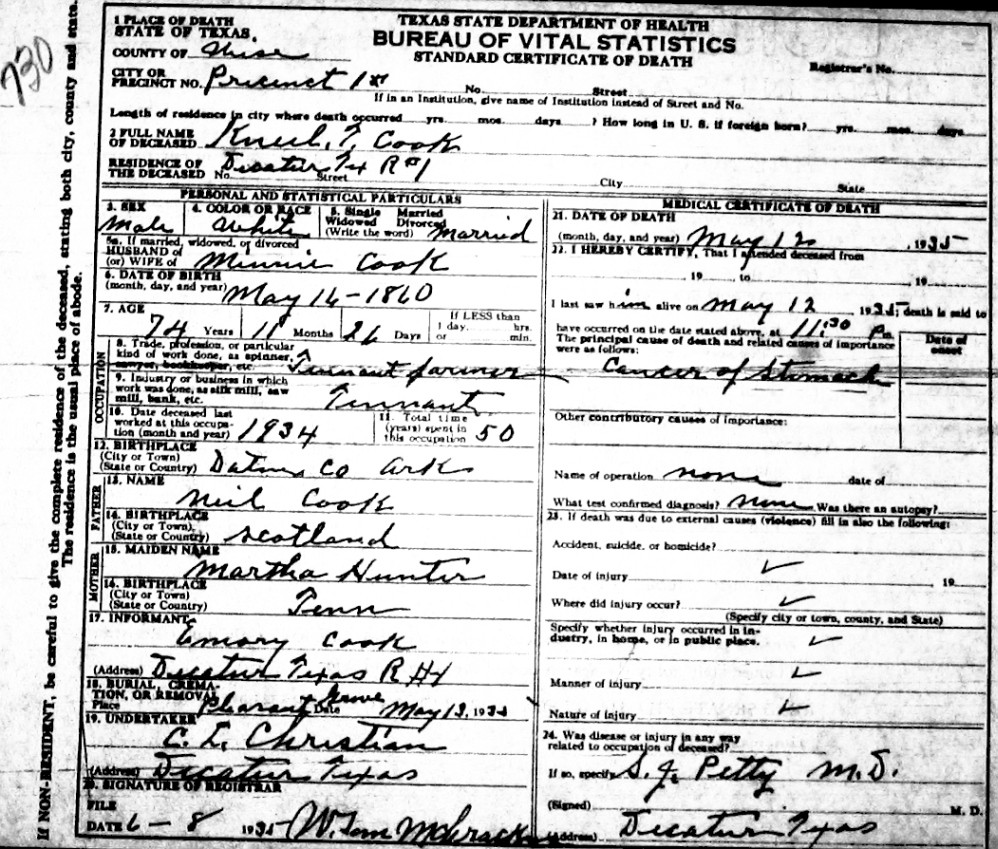 730
If NON-RESIDENT, be careful to give the complete residence of the deceased, stating both city, county and state.
The residence is the usual place of abode.
TEXAS STATE DEPARTMENT OF HEALTH
BUREAU OF VITAL STATISTICS
STANDARD CERTIFICATE OF DEATH
1 PLACE OF DEATH
STATE OF TEXAS.
COUNTY OF Wise
Registrar's No.
CITY OR
PRECINCT NO. Precinct 1st No. Street
If in an Institution, give name of Institution instead of Street and No.
Length of residence in city where death occurred yrs. mos. days ? How long in U. S. if foreign born? yrs. mos. days
2 FULL NAME
OF DECEASED T. Cook
RESIDENCE OF
THE DECEASED No. Decatur Tex R#1 Street City State
PERSONAL AND STATISTICAL PARTICULARS
3. SEX Male
4. COLOR OR RACE White
5. Single Married
Widowed Divorced
(Write the word) Married
5a. If married, widowed, or divorced
HUSBAND of
(or) WIFE of Minnie Cook
6. DATE OF BIRTH
(month, day, and year) May 16-1860
7. AGE
74 Years 11 Months 26 Days
If LESS than
1 day, hrs.
or min.
OCCUPATION
8. Trade, profession, or particular
kind of work done, as spinner,
sawyer, bookkeeper, etc. Tennant farmer
9. Industry or business in which
work was done, as silk mill, saw
mill, bank, etc. Tennant
10. Date deceased last
worked at this occupa-
tion (month and year) 1934
11. Total time
(years) spent in
this occupation 50
12. BIRTHPLACE
(City or Town)
(State or Country) Co Ark
FATHER
13. NAME
Neil Cook
14. BIRTHPLACE
(City or Town)
(State or Country) Scotland
MOTHER
15. MAIDEN NAME
Martha Hunter
16. BIRTHPLACE
(City or Town)
(State or Country) Tenn
17. INFORMANT
Emory Cook
(Address) Decatur Texas R #1
18. BURIAL, CREMA-
TION, OR REMOVAL
Place Pleasant Grove Date May 13, 1935
19. UNDERTAKER
C. E. Christian
(Address) Decatur Texas
20. SIGNATURE OF REGISTRAR
FILE
DATE 6-8 1935 W. Tom McCracken
MEDICAL CERTIFICATE OF DEATH
21. DATE OF DEATH
(month, day, and year) May 12, 1935
22. I HEREBY CERTIFY, That I attended deceased from
, 19 to , 19
I last saw him alive on May 12 1935; death is said to
have occurred on the date stated above, at 11:30 Pm.
The principal cause of death and related causes of importance
were as follows:
Date of
onset
Cancer of Stomach
Other contributory causes of importance:
Name of operation none date of
What test confirmed diagnosis? none Was there an autopsy?
23. If death was due to external causes (violence) fill in also the following:
Accident, suicide, or homicide?
Date of injury ✓ , 19
Where did injury occur? ✓
(Specify city or town, county, and State)
Specify whether injury occurred in in-
dustry, in home, or in public place. ✓
Manner of injury ✓
Nature of injury ✓
24. Was disease or injury in any way
related to occupation of deceased?
If so, specify S. J. Petty M.D.
(Signed) M. D.
(Address) Decatur Texas